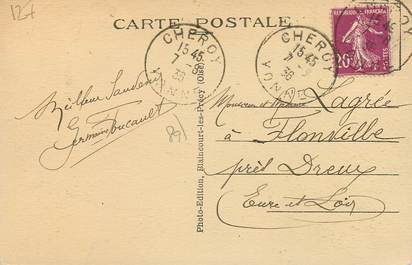 127
CARTE POSTALE
CHEROY
15 45
7 -9
36
YONNE
CHEROY
15 45
7 -9
36
YONNE
20c
POSTES
Meilleur Souvenir
Germaine Foucault
89
Photo-Edition, Blaincourt-les-Précy (Oise)
Monsieur et Madame Lagrée
à
près Dreux
Eure et Loir